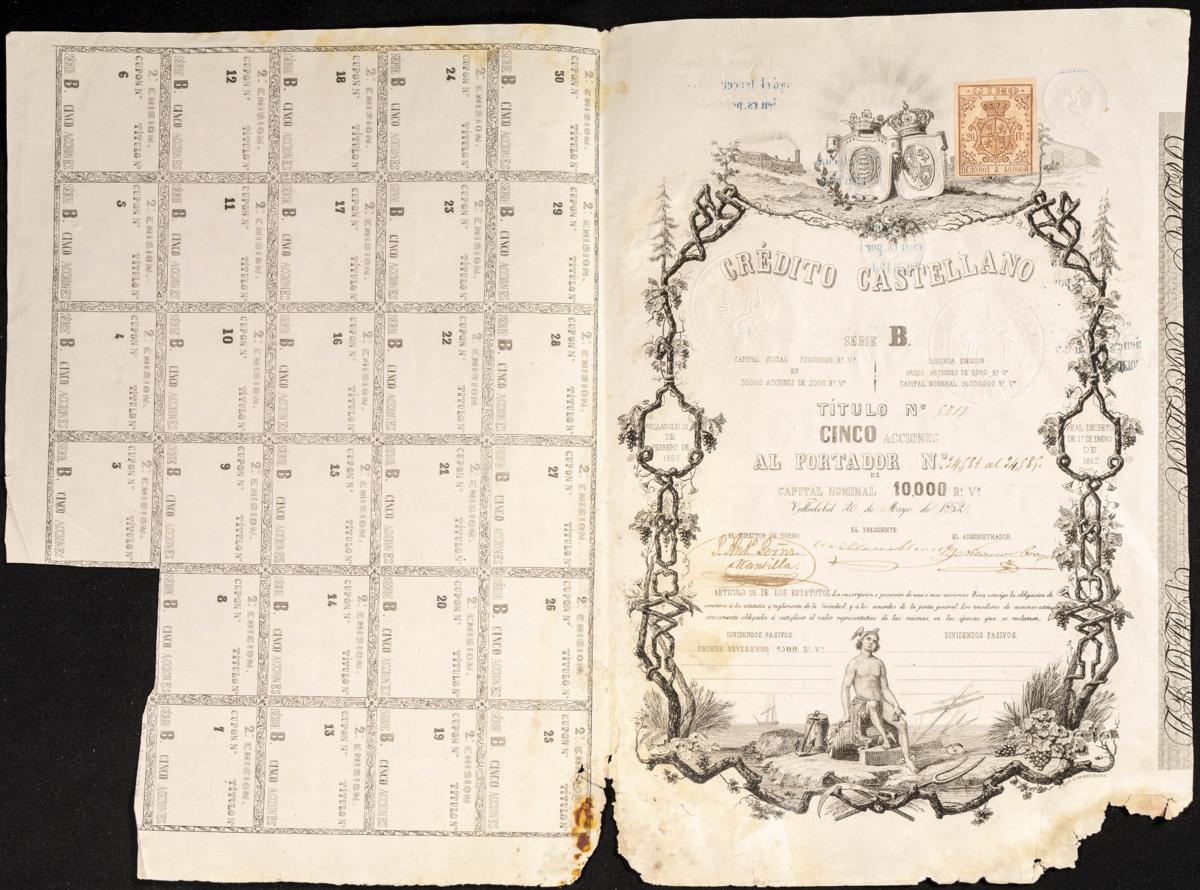 30
SÉRIE B. CINCO ACCIONES
CUPON Nº TÍTULO Nº
2ª EMISION.
24
SÉRIE B. CINCO ACCIONES
CUPON Nº TÍTULO Nº
2ª EMISION.
18
SÉRIE B. CINCO ACCIONES
CUPON Nº TÍTULO Nº
2ª EMISION.
12
SÉRIE B. CINCO ACCIONES
CUPON Nº TÍTULO Nº
2ª EMISION.
6
SÉRIE B. CINCO ACCIONES
CUPON Nº TÍTULO Nº
2ª EMISION.
29
SÉRIE B. CINCO ACCIONES
CUPON Nº TÍTULO Nº
2ª EMISION.
23
SÉRIE B. CINCO ACCIONES
CUPON Nº TÍTULO Nº
2ª EMISION.
17
SÉRIE B. CINCO ACCIONES
CUPON Nº TÍTULO Nº
2ª EMISION.
11
SÉRIE B. CINCO ACCIONES
CUPON Nº TÍTULO Nº
2ª EMISION.
5
SÉRIE B. CINCO ACCIONES
CUPON Nº TÍTULO Nº
2ª EMISION.
28
SÉRIE B. CINCO ACCIONES
CUPON Nº TÍTULO Nº
2ª EMISION.
22
SÉRIE B. CINCO ACCIONES
CUPON Nº TÍTULO Nº
2ª EMISION.
16
SÉRIE B. CINCO ACCIONES
CUPON Nº TÍTULO Nº
2ª EMISION.
10
SÉRIE B. CINCO ACCIONES
CUPON Nº TÍTULO Nº
2ª EMISION.
4
SÉRIE B. CINCO ACCIONES
CUPON Nº TÍTULO Nº
2ª EMISION.
27
SÉRIE B. CINCO ACCIONES
CUPON Nº TÍTULO Nº
2ª EMISION.
21
SÉRIE B. CINCO ACCIONES
CUPON Nº TÍTULO Nº
2ª EMISION.
15
SÉRIE B. CINCO ACCIONES
CUPON Nº TÍTULO Nº
2ª EMISION.
9
SÉRIE B. CINCO ACCIONES
CUPON Nº TÍTULO Nº
2ª EMISION.
3
SÉRIE B. CINCO ACCIONES
CUPON Nº TÍTULO Nº
2ª EMISION.
26
SÉRIE B. CINCO ACCIONES
CUPON Nº TÍTULO Nº
2ª EMISION.
20
SÉRIE B. CINCO ACCIONES
CUPON Nº TÍTULO Nº
2ª EMISION.
14
SÉRIE B. CINCO ACCIONES
CUPON Nº TÍTULO Nº
2ª EMISION.
8
SÉRIE B. CINCO ACCIONES
CUPON Nº TÍTULO Nº
2ª EMISION.
25
SÉRIE B. CINCO ACCIONES
CUPON Nº TÍTULO Nº
2ª EMISION.
19
SÉRIE B. CINCO ACCIONES
CUPON Nº TÍTULO Nº
2ª EMISION.
13
SÉRIE B. CINCO ACCIONES
CUPON Nº TÍTULO Nº
2ª EMISION.
7
SÉRIE B. CINCO ACCIONES
CUPON Nº TÍTULO Nº
2ª EMISION.
GIRO
20
DE 10.001 A 40.000 R
CRÉDITO CASTELLANO
SÉRIE B.
CAPITAL SOCIAL 72000000 Rˢ Vⁿ
EN
36000 ACCIONES DE 2000 Rˢ Vⁿ
SEGUNDA EMISION
18000 ACCIONES DE 2000 Rˢ Vⁿ
CAPITAL NOMINAL 36000000 Rˢ Vⁿ
TÍTULO Nº
CINCO ACCIONES
AL PORTADOR Nº 34,581 al 34,585.
DE
CAPITAL NOMINAL 10,000 Rˢ Vⁿ
Valladolid 20 de Mayo de 1862.
VALLADOLID 21
DE
FEBRERO DE
1862
REAL DECRETO
DE 17 DE ENERO
DE
1862
EL DIRECTOR DE TURNO.
EL PRESIDENTE.
EL ADMINISTRADOR.
Mansilla.
ARTICULO 16. DE LOS ESTATUTOS. La suscripcion ó posesion de una ó mas acciones lleva consigo la obligacion de
someterse á los estatutos y reglamento de la Sociedad, y á los acuerdos de la junta general. Los tenedores de acciones están
obligados á satisfacer el valor representativo de las mismas, en las épocas que se reclamen.
DIVIDENDOS PASIVOS.
DIVIDENDOS PASIVOS.
PRIMER DIVIDENDO 2,500 Rˢ Vⁿ